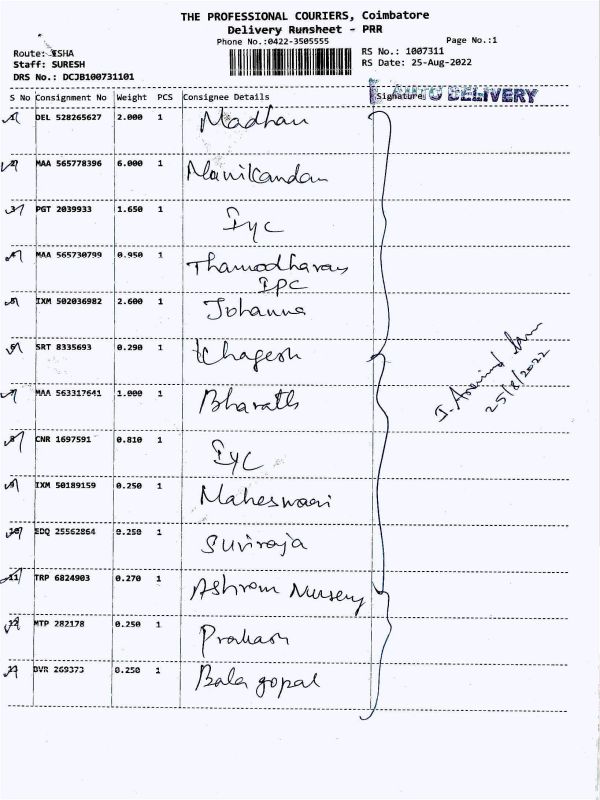 THE PROFESSIONAL COURIERS, Coimbatore
Delivery Runsheet - PRR
Phone No.:0422-3505555 Page No.:1
Route: ESHA RS No.: 1007311
Staff: SURESH RS Date: 25-Aug-2022
DRS No.: DCJB100731101
S No Consignment No Weight PCS Consignee Details Signature AUTO DELIVERY
1 DEL 528265627 2.000 1 Madhan
2 MAA 565778396 6.000 1 Manikandan
3 PGT 2039933 1.650 1 IYC
4 MAA 565730799 0.950 1 Thamodharan
IPC
5 IXM 502036982 2.600 1 Johanna
6 SRT 8335693 0.290 1 Khagesh
7 MAA 563317641 1.000 1 Bharath
8 CNR 1697591 0.810 1 IYC
9 IXM 50189159 0.250 1 Maheswari
10 EDQ 25562864 0.250 1 Suviraja
11 TRP 6824903 0.270 1 Ashram Nursery
12 MTP 282178 0.250 1 Prakash
13 DVR 269373 0.250 1 Bala gopal
25/8/2022